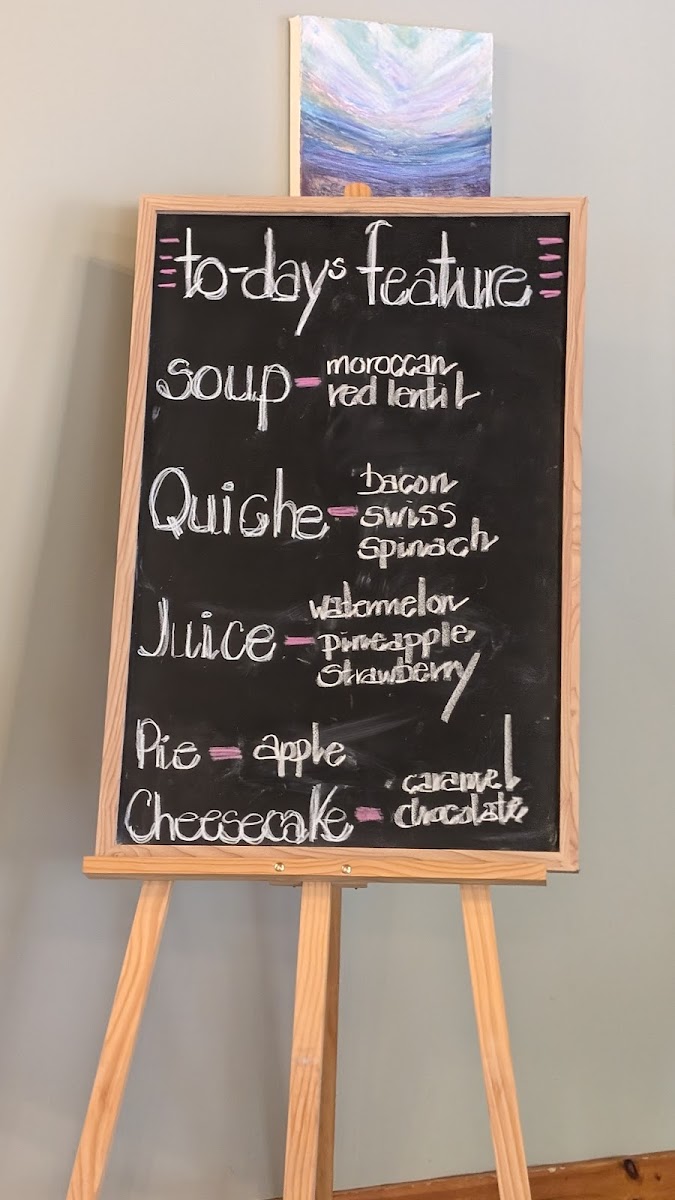 to-days feature
soup - moroccan
red lentil
Quiche - bacon
swiss
spinach
Juice - watermelon
pineapple
strawberry
Pie = apple
Cheesecake - caramel
chocolate